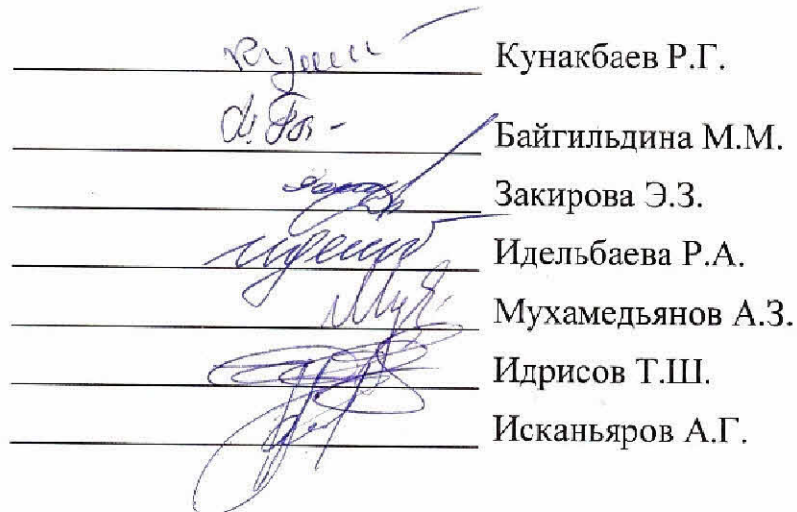 Кунакбаев Р.Г.
Байгильдина М.М.
Закирова Э.З.
Идельбаева Р.А.
Мухамедьянов А.З.
Идрисов Т.Ш.
Исканьяров А.Г.